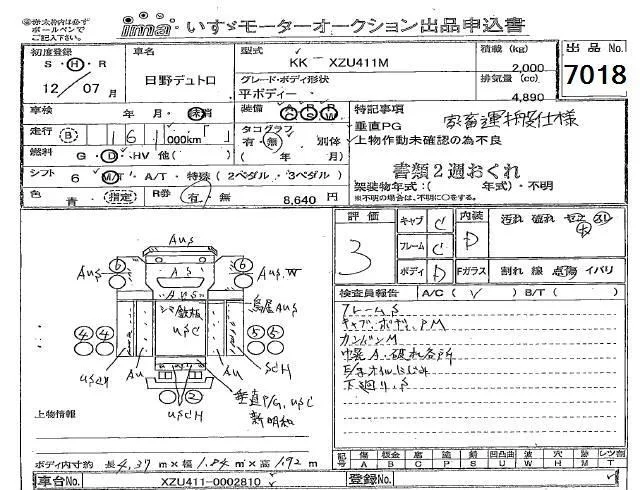 ㊟ 太枠内は必ず
ボールペンで
ご記入下さい。
ima いすゞモーターオークション出品申込書
初度登録
S・H・R
12/07月
車名
日野デュトロ
型式
KK－XZU411M
グレード・ボディ形状
平ボディー
積載(kg)
2,000
排気量(cc)
4,890
出品No.
7018
車検
年 月・未・消
装備
A/C P/S P/W
走行 B 161,000km「 」
タコグラフ
有・無 別体
( 年 月)
燃料
G・D・HV 他( )
シフト 6 M/T・A/T・特殊(2ペダル・3ペダル)
色 青 (指定)
R券 有・無 8,640円
特記事項
垂直PG 家畜運搬仕様
上物作動未確認の為不良
書類2週おくれ
架装物年式:( 年式)・不明
※不明の場合は、不明に○をする。
評価
3
キャブ C
フレーム C
ボディ D
内装 D
Fガラス
割れ 線 点傷 イバリ
検査員報告 A/C( ✓ ) B/T( )
フレームS
キャブ、ボデー、PM
カンバンM
下廻り、S
AuS
AuS
AuS.W
6
6
AS
AuS
鉄板
uSC
鳥居AuS
4 4
5 5
uScH
Au
Au
ScH
2
uScH
垂直P/G、uSC
新明和
上物情報
ボディ内寸約 長4.37m×幅1.84m×高1.92m
記号
傷 A
板金 B
腐 C
塗 P
錆 S
凹凸曲 U
波 W
穴 H
跡 M
レツ割 T
車台No. XZU411-0002810
登録No.